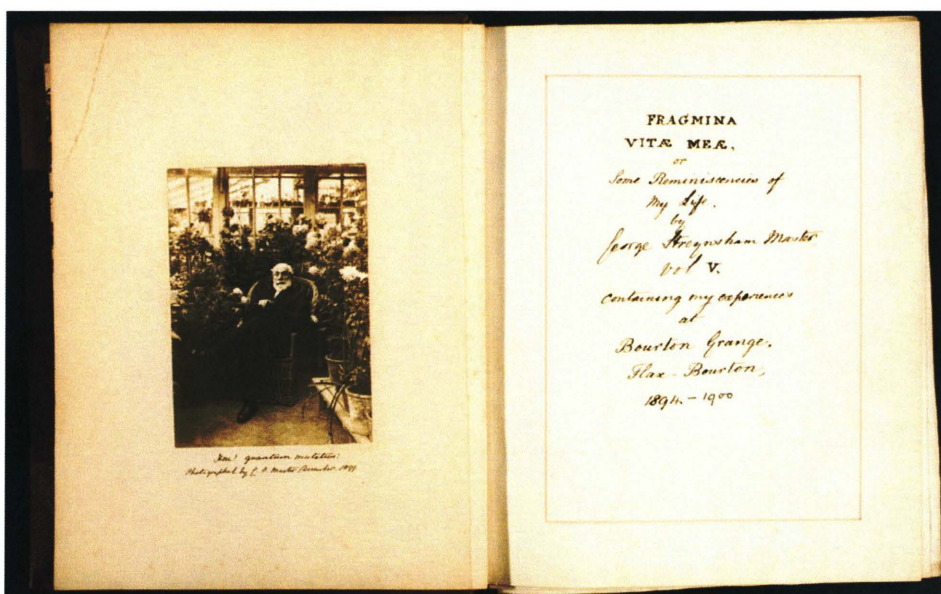 Heu! quantum mutatus!
Photographed by E. O. Master December 1899
FRAGMINA
VITÆ MEÆ.
or
Some Reminiscencies of
My Life.
by
George Streynsham Master
Vol V.
containing my experiences
at
Bourton Grange.
Flax-Bourton,
1894.-1900